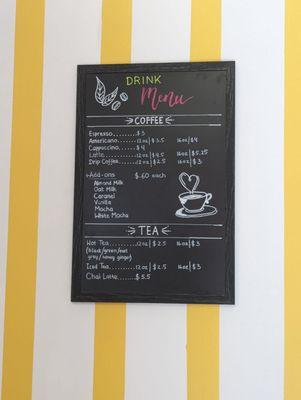 DRINK
Menu
COFFEE
Espresso.........$3
Americano.......12oz|$3.5 16oz|$4
Cappuccino......$4
Latte............12oz|$4.5 16oz|$5.25
Drip Coffee......12oz|$2.5 16oz|$3
+Add-ons $.60 each
Almond Milk
Oat Milk
Caramel
Vanilla
Mocha
White Mocha
TEA
Hot Tea.........12oz|$2.5 16oz|$3
(black/green/earl
grey/honey ginger)
Iced Tea.........12oz|$2.5 16oz|$3
Chai Latte......$5.5